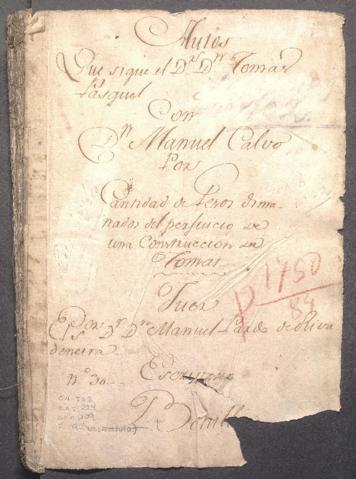 Autos
Que sigue el Dr. Dn. Tomas
Pasquel
Con
Dn. Manuel Calvo
Por
Cantidad de Pesos dima-
nados del perjuicio de
una Construccion en
Tomas
Juez
El Sor. Dr. Dn. Manuel Pardo de Riva
deneira
N.º 30
Escrivano
1750
84